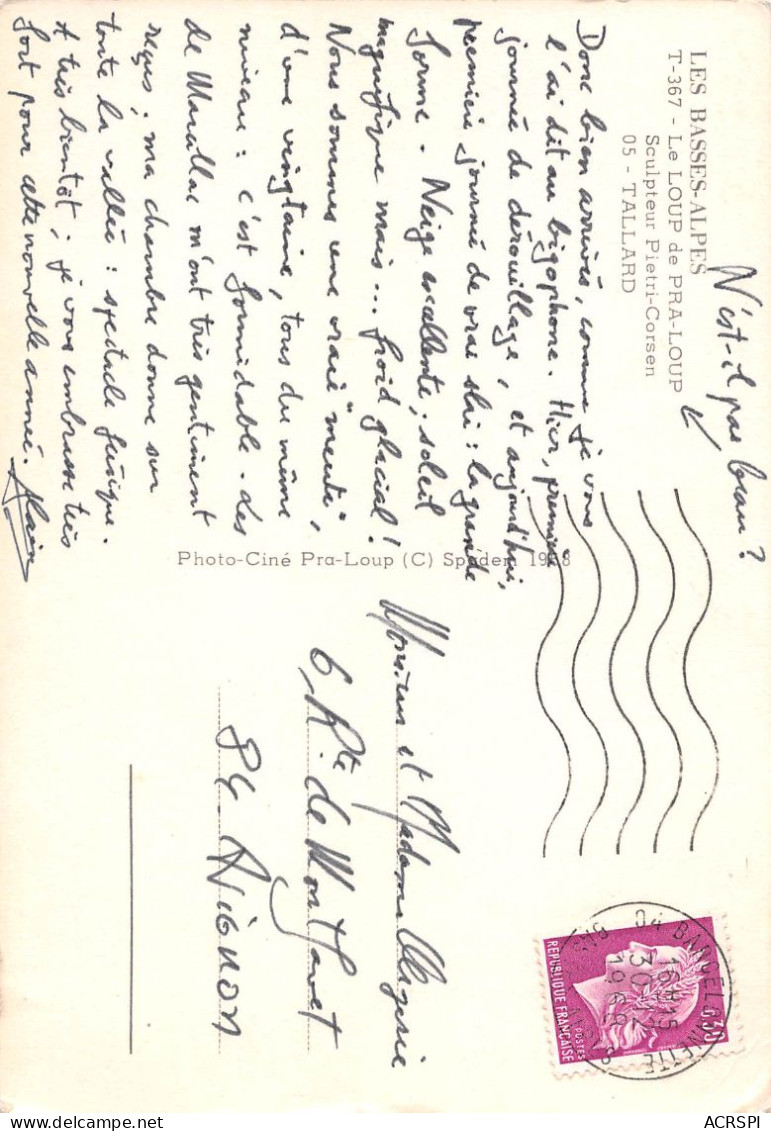 LES BASSES-ALPES
T-367 - Le LOUP de PRA-LOUP
Sculpteur Pietri-Corsen
05 - TALLARD
N'est-il pas beau ?
Donc bien arrivés, comme je vous
l'ai dit au bigophone. Hier, première
journée de dérouillage, et aujourd'hui,
première journée de vrai ski : la grande
forme. Neige excellente, soleil
magnifique mais... froid glacial !
Nous sommes une vraie "meute",
d'une vingtaine, tous du même
niveau : c'est formidable. Les
de Marillac m'ont très gentiment
reçus, ma chambre donne sur
toute la vallée : spectacle féérique.
A très bientôt ; je vous embrasse très
fort pour cette nouvelle année. Alain
Photo-Ciné Pra-Loup (C) Spadem 1968
Monsieur et Madame
6, Rte de Montfavet
84. Avignon
04 BARCELONNETTE
16H15
30-12
1968
0,30
POSTES
REPUBLIQUE FRANÇAISE
ACRSPI